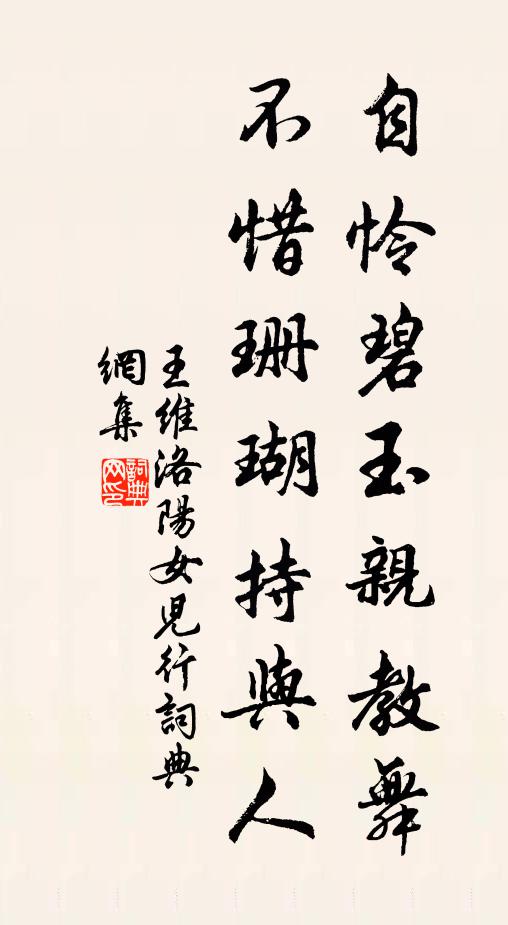 自憐碧玉親教舞
不惜珊瑚持與人
王維洛陽女兒行詞典
網集
詞典網印